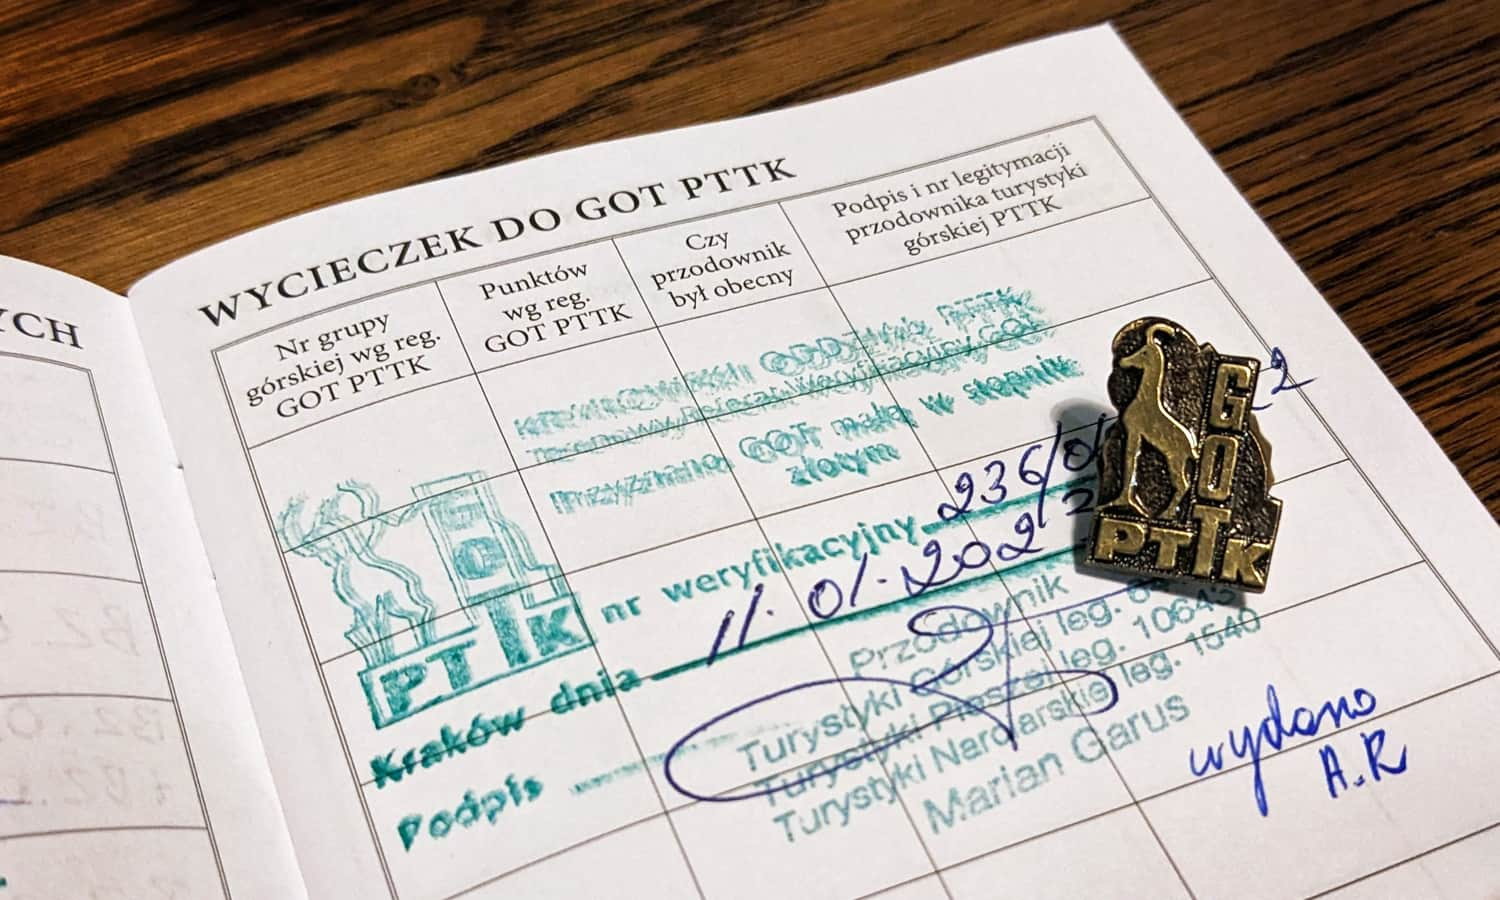 YCH
WYCIECZEK DO GOT PTTK
Nr grupy
górskiej wg reg.
GOT PTTK
Punktów
wg reg.
GOT PTTK
Czy
przodownik
był obecny
Podpis i nr legitymacji
przodownika turystyki
górskiej PTTK
PTTK
Weryfikacyjny GOT
Przyznano GOT małą w stopniu
złotym
PTTK
nr weryfikacyjny 236/01
2
Kraków dnia 11.01.202
Podpis
Przodownik
Turystyki Górskiej leg.
Turystyki Pieszej leg. 10643
Turystyki Narciarskiej leg. 1540
Marian Garus
wydano
A.R
GOT
PTTK